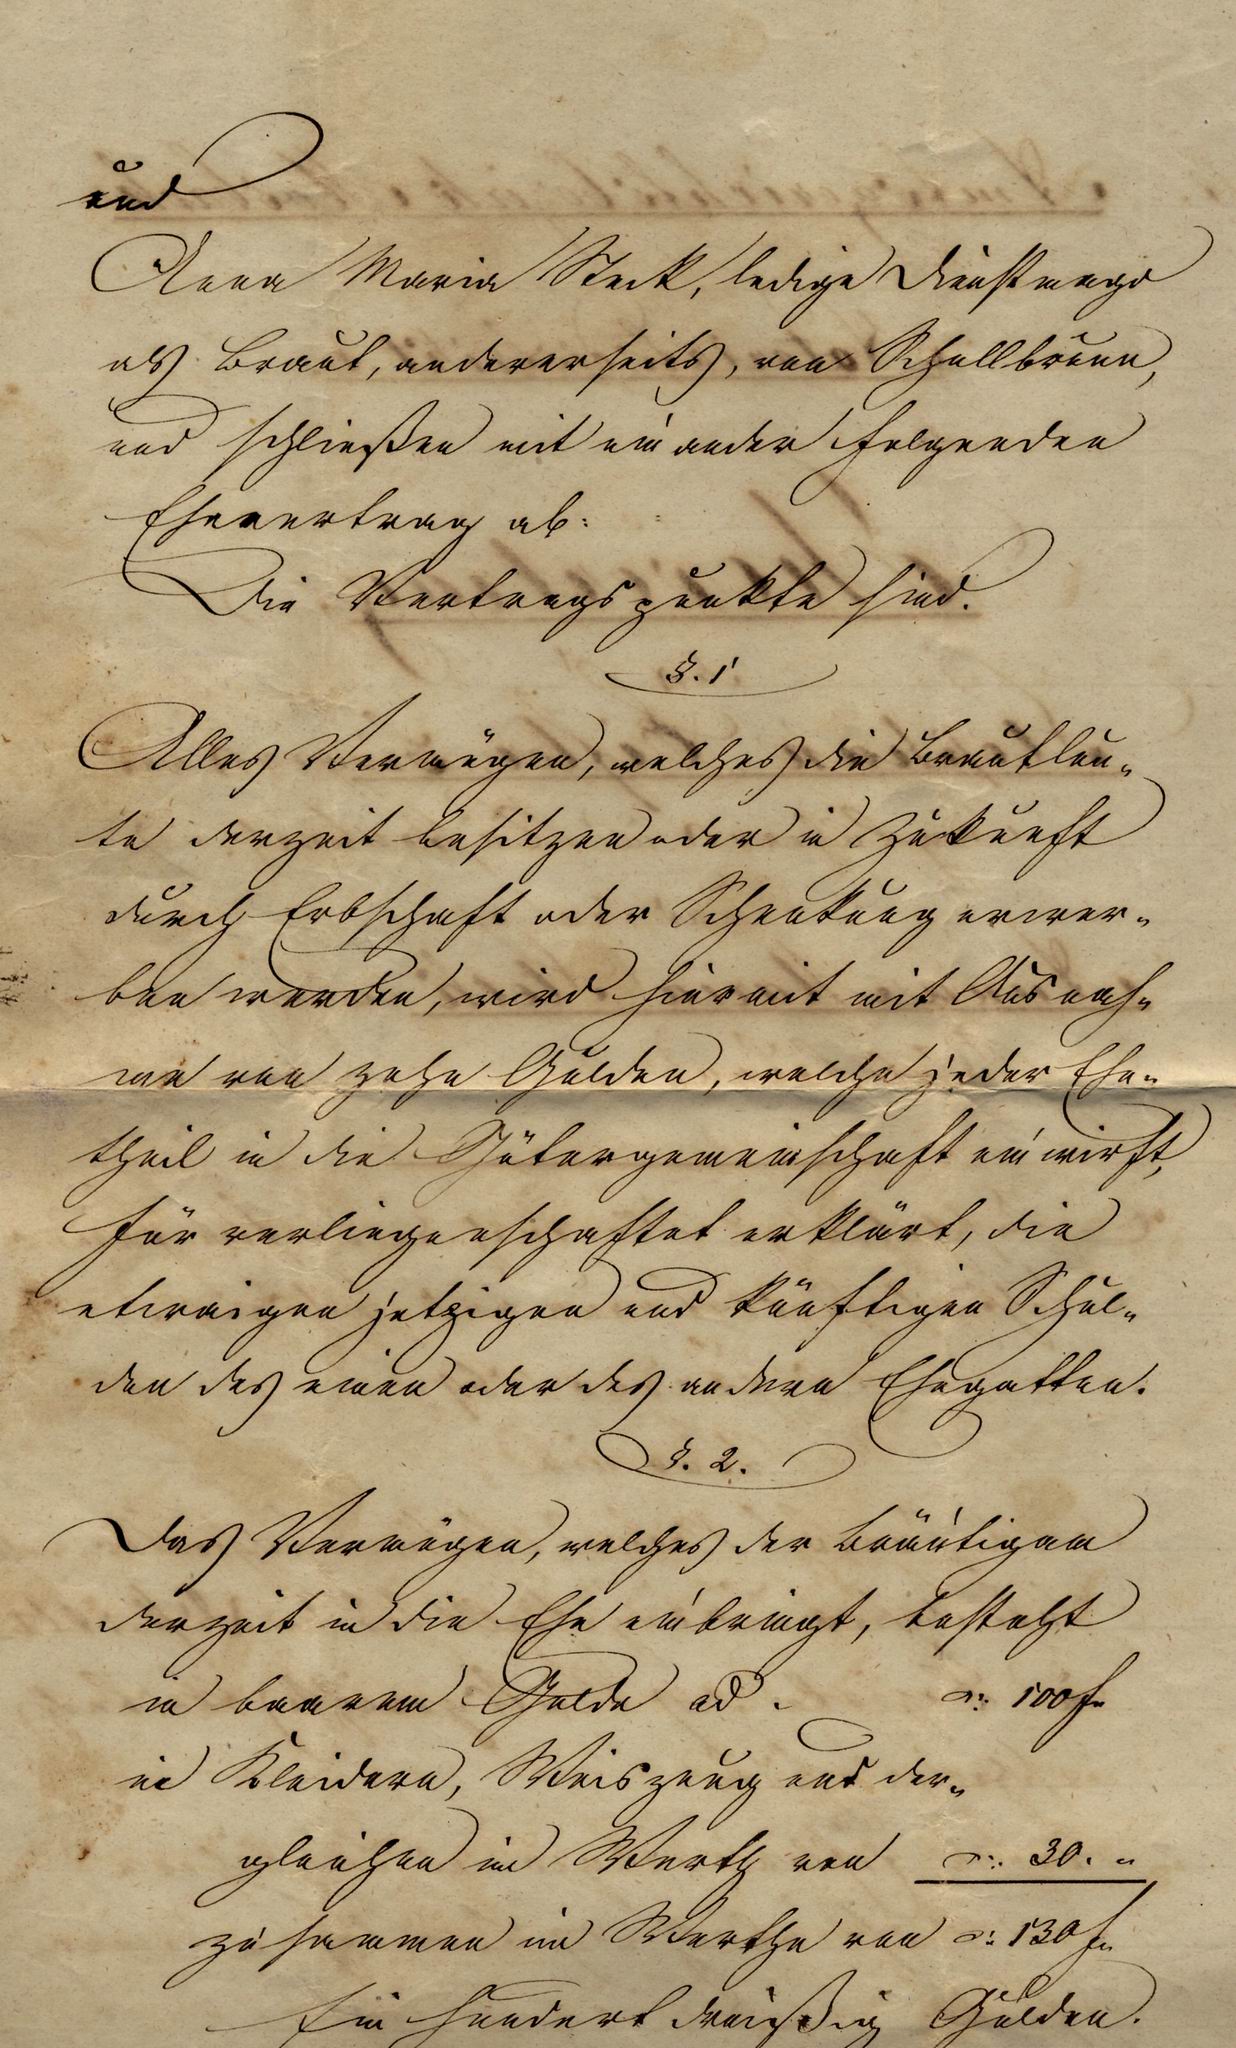 und
Anna Maria Steck, ledige Dienstmagd
als Braut, andererseits, von Schellbronn,
und schließen mit ein ander folgenden
Ehevertrag ab:
Die Vertragspunkte sind.
§. 1
Alles Vermögen, welches die Brautleu-
te derzeit besitzen oder in Zukunft
durch Erbschaft oder Schenkung erwer-
ben werden, wird hiermit mit Ausnah-
me von zehn Gulden, welche jeder Ehe-
theil in die Gütergemeinschaft einwirft,
für verliegenschaftet erklärt, die
etwaigen jetzigen und künftigen Schul-
den des einen oder des andern Ehegatten.
§. 2.
Das Vermögen, welches der Bräutigam
derzeit in die Ehe einbringt, besteht
in baarem Gelde ad. 100 f.
in Kleidern, Weiszeug und der-
gleichen im Werth von 30. "
zusammen im Werthe von 130 f.
Ein hundert dreißig Gulden.